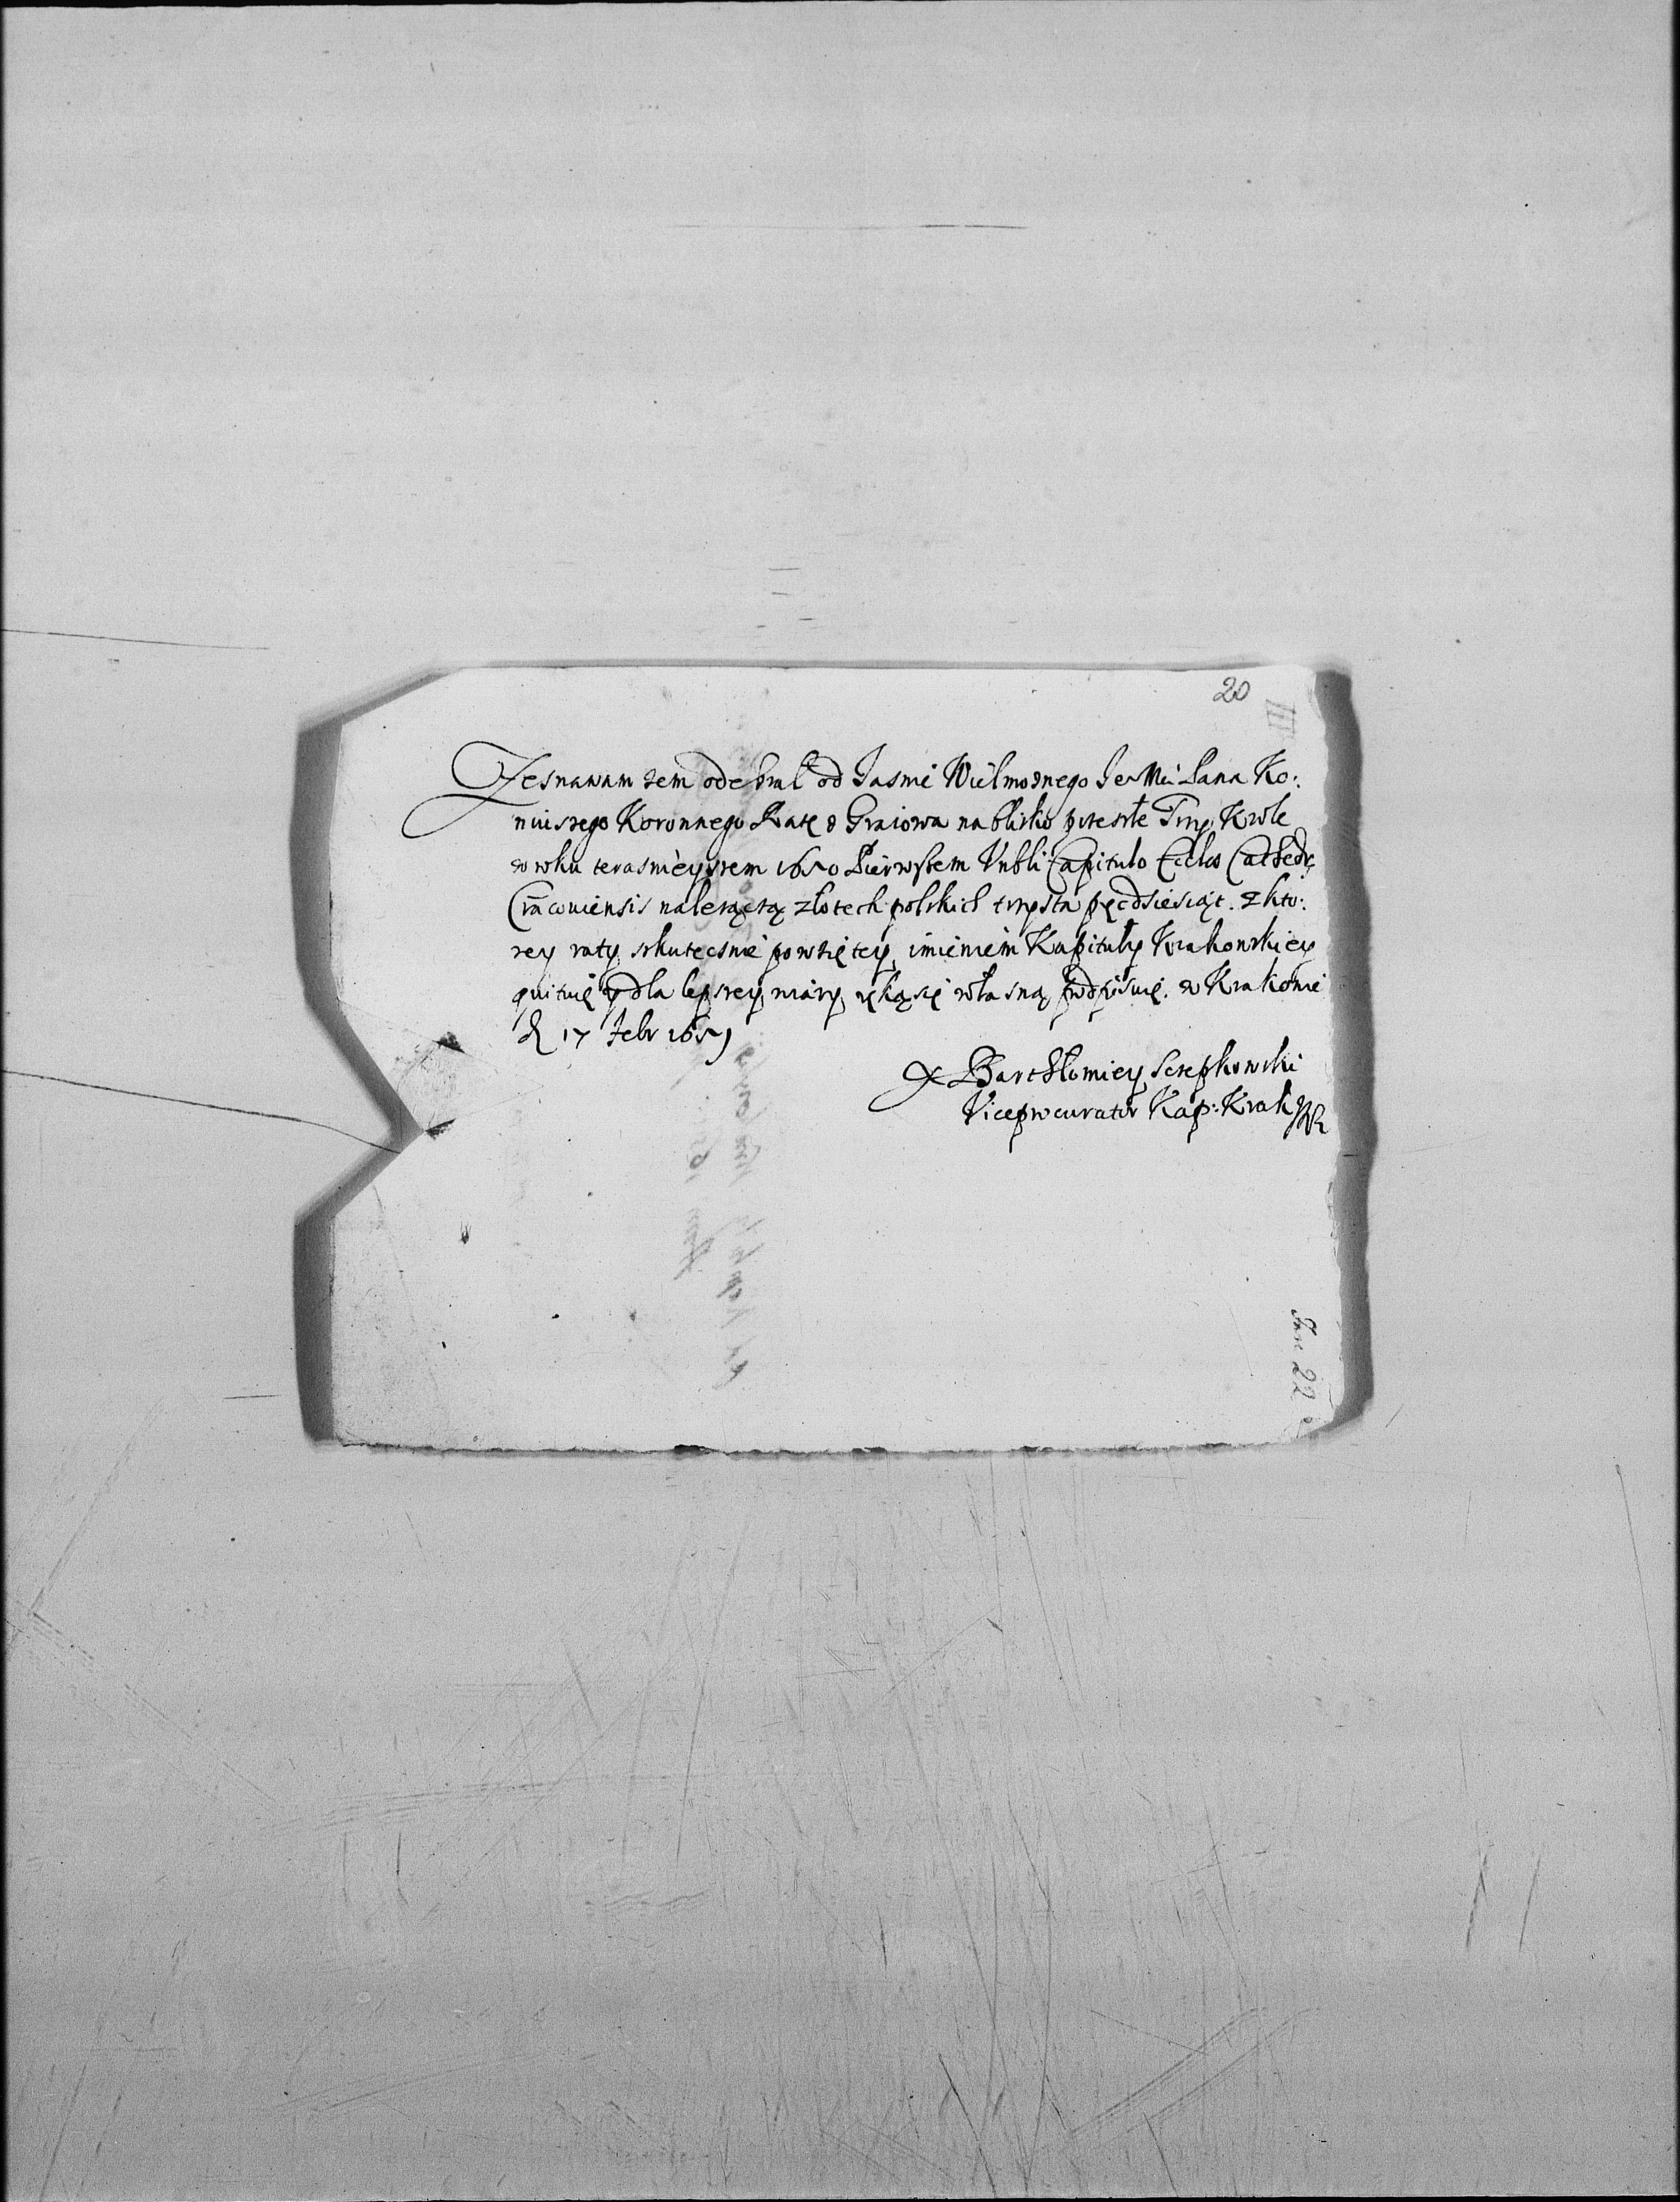 20
III
Zesnawam zem odebral od Jasnie Wielmoznego Je Mci Pana Ko:
niuszego Koronnego Ratę z Graiowa na blisko przeszłe Trzy Krole
w roku terasnieyszem 1650 Pierwszem Vnbli Capitulo Eccles Cathedr
Cracouiensis nalezączą złotech polskich trzysta pęcdziesiąt. z kto:
rey raty skutecsnie powziętey, imieniem Kapituły Krakowskiey
quituię y dla lepszey wiary ręką się własną podpisuię. w Krakowie
d 17 Febr 1651
X Barthłomiey Szepkowski
Viceprocurator Kap: Krak
22